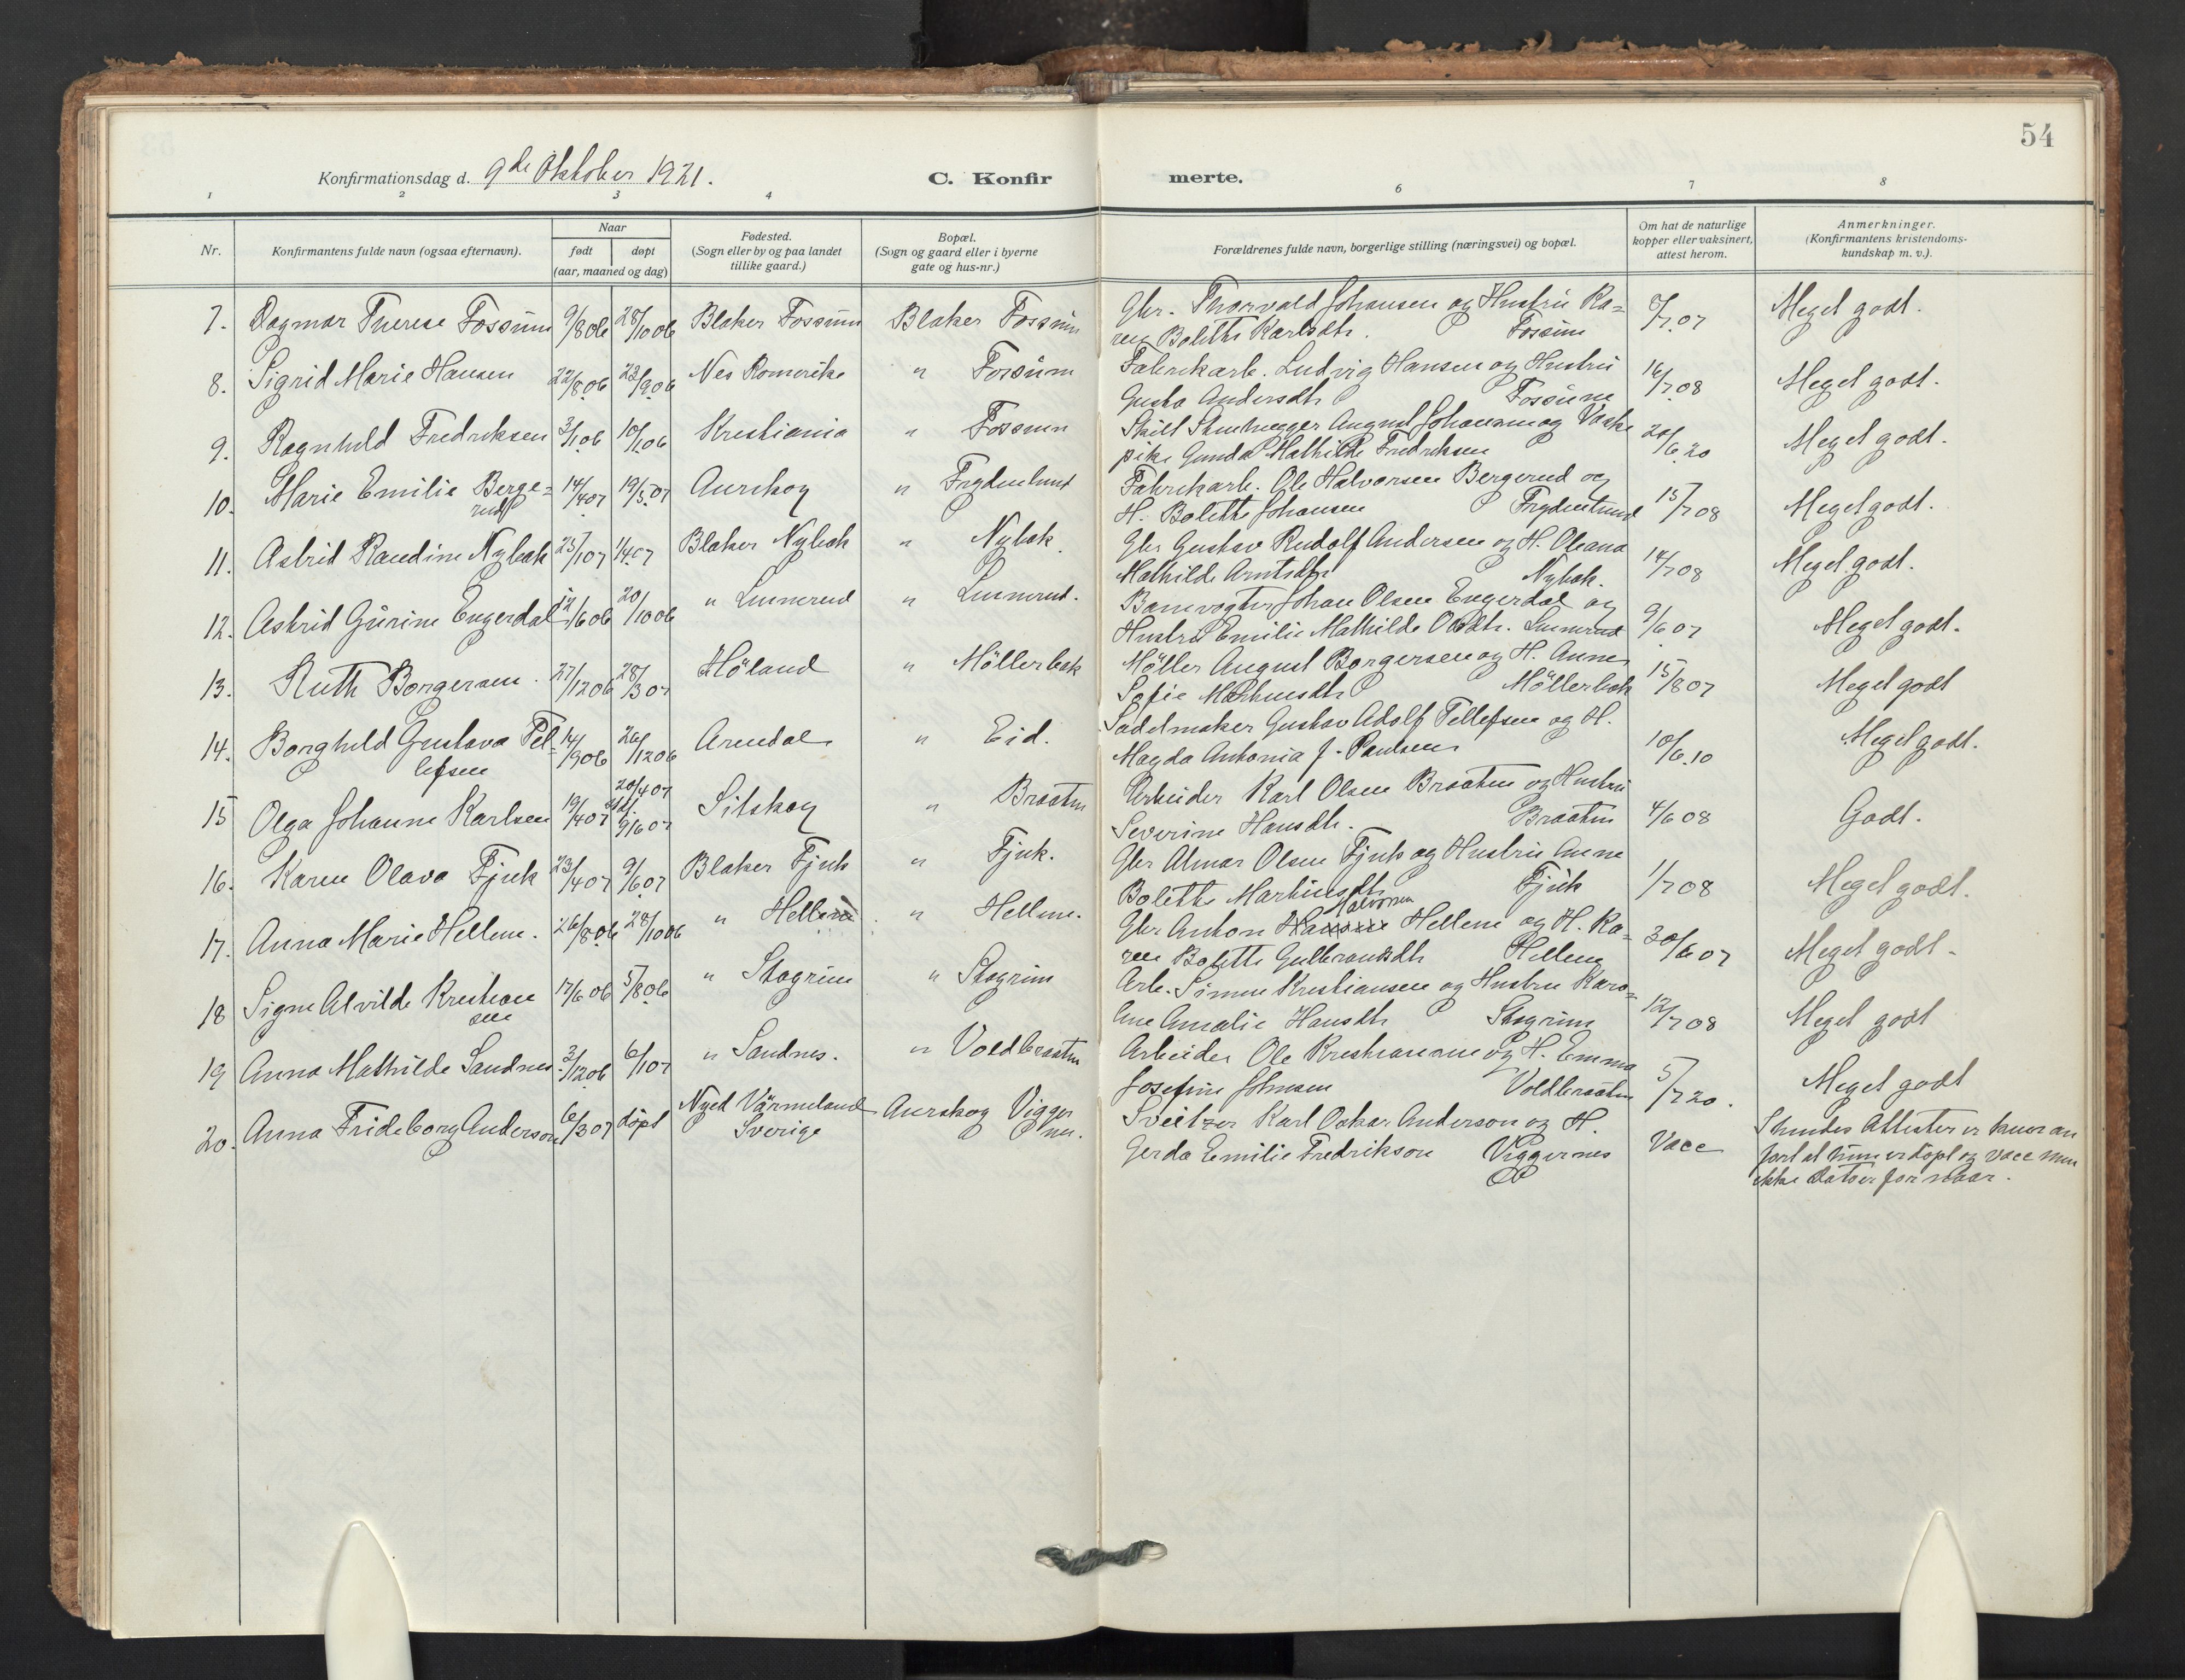 54
Konfirmationsdag d. 9de Oktober 1921.
C. Konfirmerte.
1 2 3 4 6 7 8
Nr.
Konfirmantens fulde navn (ogsaa efternavn).
Naar
født døpt
(aar, maaned og dag)
Fødested.
(Sogn eller by og paa landet
tillike gaard.)
Bopæl.
(Sogn og gaard eller i byerne
gate og hus-nr.)
Forældrenes fulde navn, borgerlige stilling (næringsvei) og bopæl.
Om hat de naturlige
kopper eller vaksinert,
attest herom.
Anmerkninger.
(Konfirmantens kristendoms-
kundskap m. v.).
7. Dagmar Therese Fossum 9/8 06 28/10 06 Blaker Fossum Blaker Fossum Gbr. Thorvald Johansen og Hustru Ka= 8/7.07 Meget godt.
ren Bolette Karlsdtr. Fossum
8. Sigrid Marie Hansen 22/8.06 23/9.06 Nes Romerike " Fossum Fabrikarb. Ludvig Hansen og Hustru 16/7.08 Meget godt.
Gusta Andersdtr Fossum
9. Ragnhild Fredriksen 3/1.06 10/1.06 Kristiania " Fossum August Johansen og Vaske 20/6.20 Meget godt.
pike Gunda Mathilde Fredriksen
10. Marie Emilie Berge= 14/4.07 19/5.07 Aurskog " Frydenlund Fabrikarb. Ole Halvorsen Bergerud og 15/7 08 Meget godt.
rud H. Bolette Johansen Frydenlund
11. Astrid Randine Nybak 25/1 07 1/4.07 Blaker Nybak " Nybak. Gbr Gustav Rudolf Andersen og H. Oleana 14/7 08 Meget godt.
Mathilde Arntsdtr Nybak.
12. Astrid Gurine Engerdal 12/6 06 20/10 06 " Linnerud " Linnerud. Banevogter Johan Olsen Engerdal og 9/6 07 Meget godt.
Hustru Emilie Mathilde Olsdtr. Linnerud
13. Ruth Borgersen. 27/12 06 28/3 07 Höland " Möllerbak Möller August Borgersen og H. Anne 15/8 07 Meget godt
Sofie Markusdtr Möllerbak
14. Borghild Gustava Tel= 14/9 06 26/12 06 Arendal " Eid. Sadelmaker Gustav Adolf Tellefsen og H. 10/6.10 Meget godt.
lefsen Magda Antonia f. Paulsen
15 Olga Johanne Karlsen 19/4 07 20/4 07 9/6 07 Sitskog " Braaten Arbeider Karl Olsen Braaten og Hustru 4/6 08 Godt.
Severine Hansdtr. Braaten
16. Karen Olava Fjuk 23/4 07 9/6 07 Blaker Fjuk " Fjuk. Gbr Almar Olsen Fjuk og Hustru Anne 1/7 08 Meget godt.
Bolette Martinsdtr Fjuk
17. Anna Marie Hellene. 26/8.06 28/10 06 " Hellene " Hellene. Gbr Anton Halvorsen Hellene og H. Ka= 30/6 07 Meget godt.
ren Bolette Gulbrandsdtr Hellene
18 Signe Alvilde Kristian 17/6 06 5/8.06 " Stogrim " Stogrim Arb. Simen Kristiansen og Hustru Karo= 12/7 08 Meget godt
sen line Amalie Hansdtr Stogrim
19 Anna Mathilde Sandnes 3/12.06 6/1 07 " Sandnes. " Voldbraaten Arbeider Ole Kristiansen og H. Emma 5/7 20. Meget godt
Josefine Johnsen Voldbraaten
20. Anna Frideborg Anderson 6/3 07 döpt Nyed Värmeland Aurskog Vigger Sveitzer Karl Oskar Anderson og H. Vacc
Sverige nes. Gerda Emilie Fredrikson Viggernes
I hendes Attester er kuns an
fört at hun er döpt og vacc men
ikke datoer for naar.